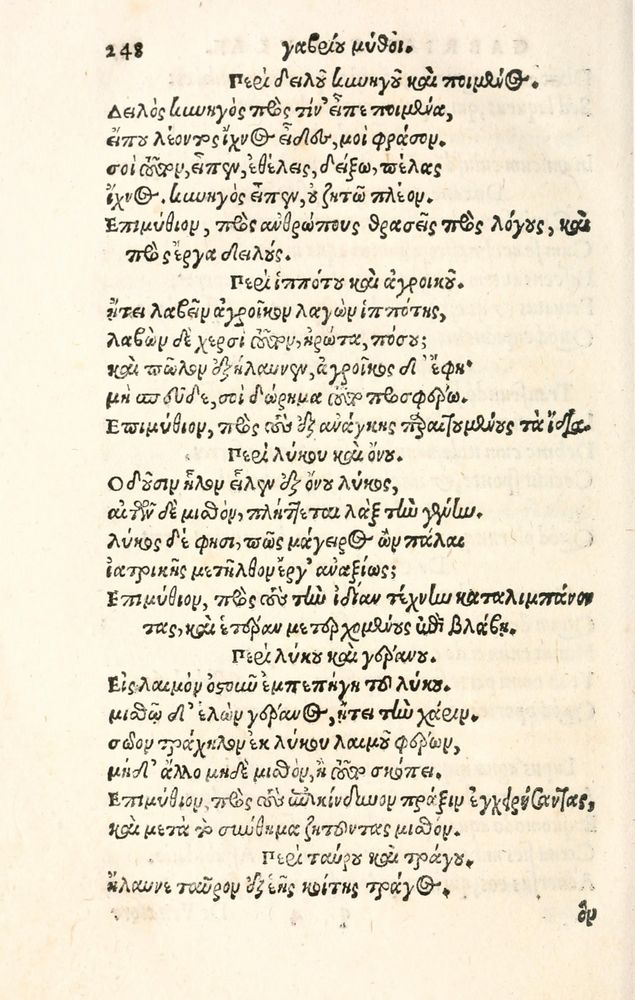 248 γαβρίου μῦθοι.
Περὶ δειλοῦ κυνηγοῦ καὶ ποιμένος.
Δειλὸς κυνηγὸς πρὸς τίν' εἶπε ποιμένα,
εἴπου λέοντος ἴχνος εἶδες, μοι φράσον.
σοὶ αὐτὸν, εἶπεν, ἐθέλεις, δείξω, πέλας
ἴχνος. κυνηγὸς εἶπεν, οὐ ζητῶ πλέον.
Επιμύθιον, πρὸς ἀνθρώπους θρασεῖς πρὸς λόγους, καὶ
πρὸς ἔργα δειλούς.
Περὶ ἱππότου καὶ ἀγροικου.
ᾔτει λαβεῖν ἀγροῖκον λαγὼν ἱππότης,
λαβὼν δὲ χερσὶ αὐτὸν, ἠρώτα, πόσου;
καὶ πῶλον ἐξήλαυνεν, ἀγροῖκος δ' ἔφη·
μὴ σπεῦδε, σοὶ δώρημα αὐτὸν προσφέρω.
Επιμύθιον, πρὸς τοὺς ἐξ ἀνάγκης χαριζομένους τὰ ἴδια.
Περὶ λύκου καὶ ὄνου.
Οδοῦσιν ἧλον εἷλεν ἐξ ὄνου λύκος,
αἰτῶν δὲ μισθὸν, πλήττεται λὰξ τὴν γένυν.
λύκος δέ φησι, πῶς μάγειρος ὢν πάλαι
ἰατρικῆς μετῆλθον ἔργ' ἀναξίως;
Επιμύθιον, πρὸς τοὺς τὴν ἰδίαν τέχνην καταλιμπάνον
τας, καὶ ἑτέραν μετερχομένους ἐπὶ βλάβῃ.
Περὶ λύκου καὶ γεράνου.
Εἰς λαιμὸν ὀστοῦν ἐμπεπήγη τοῦ λύκου.
μισθῷ δ' ἑλὼν γέρανος, ᾔτει τὴν χάριν.
σῶον τράχηλον ἐκ λύκου λαιμοῦ φέρων,
μήδ' ἄλλο μηδὲ μισθὸν, ἢ αὐτὸν σκόπει.
Επιμύθιον, πρὸς τοὺς ἐπικίνδυνον πρᾶξιν ἐγχειρίσαντας,
καὶ μετὰ τὸ σύνθημα ζητοῦντας μισθόν.
Περὶ ταύρου καὶ τράγου.
ἤλαυνε ταῦρον ἐξ ἑῆς κοίτης τράγος.
ὃν